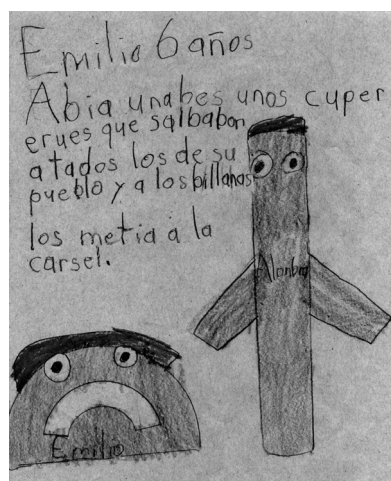 Emilio 6 años
Abia unabes unos cuper
erues que salbabon
atados los de su
pueblo y a los billanas
los metia a la
carsel.
Emilio